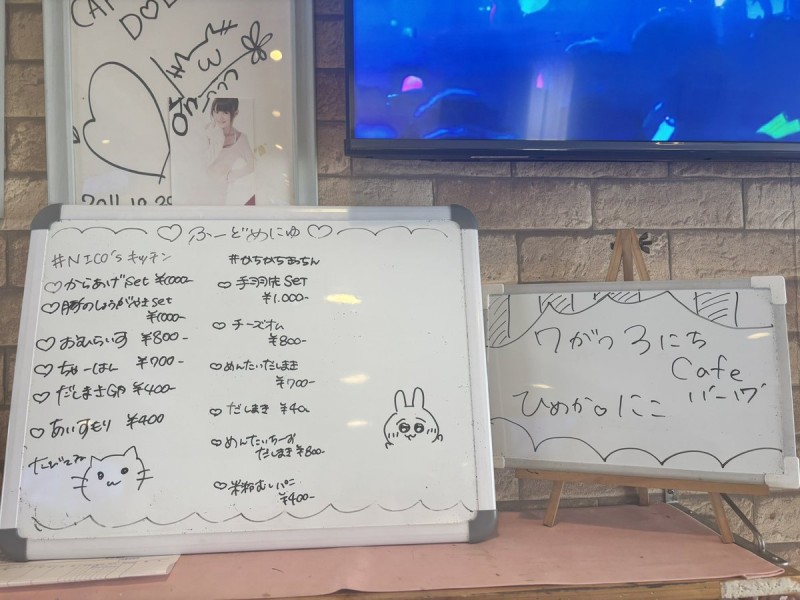 2011.10.29
♡ ふーどめにゅ ♡
#NICO'sキッチン
♡からあげset ¥1000-
♡豚のしょうがやきset
¥1000-
♡おむらいす ¥800-
♡ちゃーはん ¥700-
♡だしまき ¥400-
♡あいすもり ¥400
♡手羽先SET
¥1.000-
♡チーズオム
¥800-
♡めんたいだしまき
¥700-
♡だしまき ¥400
♡めんたいちーず
だしまき ¥800-
♡米粉むしパン
¥400-
7がつ3にち
Cafe
ひめか♡にこ